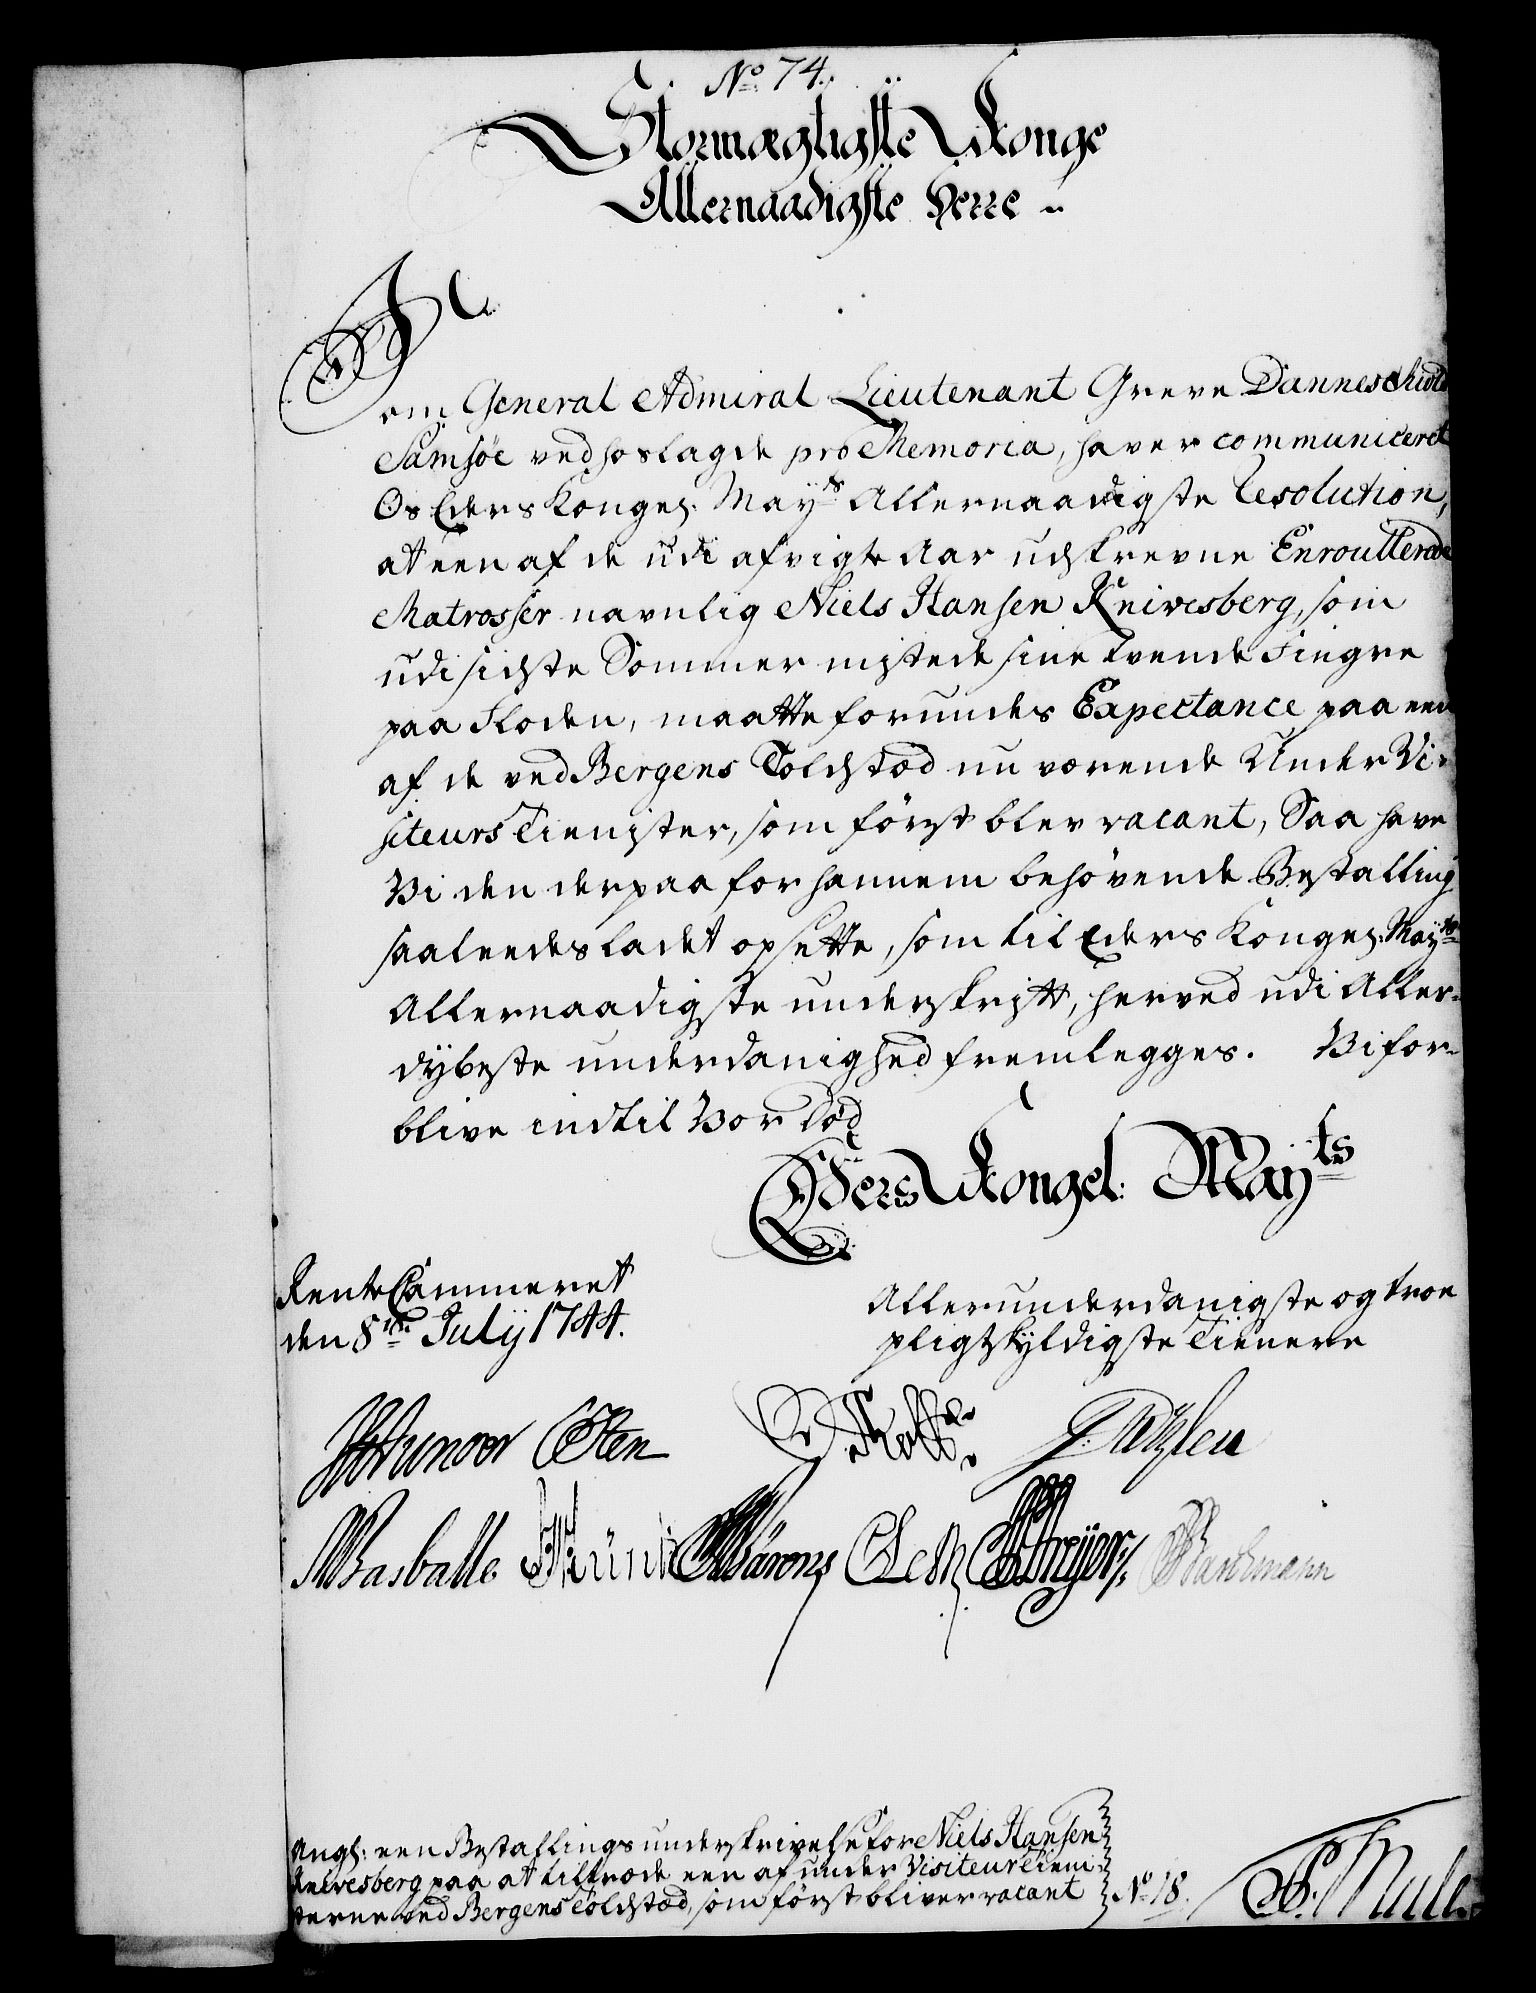 No 74.
Stormægtigste Konge
Allernaadigste Herre
Som General Admiral Lieutenant Greve Danneschiold
Samsöe vedhoslagde pro Memoria, haver communiceret
Os Eders Kongel: Mayts Allernaadigste Resolution,
at een af de udi afvigte Aar udskrevne Enroullerede
Matrosser navnlig Niels Hansen Knivesberg, som
udi sidste Sommer mistede sine tvende Fingre
paa Floden, maatte forundes Expectance paa een
af de ved Bergens Toldstæd nu værende Under Vi-
siteurs Tienister, som først blev vacant, Saa have
Vi den derpaa for hannem behövende Bestalling
saaleedes ladet opsette, som til Eders Kongel: Mayts
Allernaadigste underskrift, herved udi Aller-
dybeste underdanighed fremlegges. Vi for-
blive indtil Vor død
Eders Kongel: Mayts
RenteCammeret
den 8de July 1744.
Allerunderdanigste og troe
pligtskyldigste Tienere
Osten
Basballe Bärens Bachmann
Angl: een Bestallings underskrivelse for Niels Hansen
Knivesberg paa at tiltræde een af under Visiteur Tieni-
sterne ved Bergens Toldstæd, som först bliver vacant
No 18.